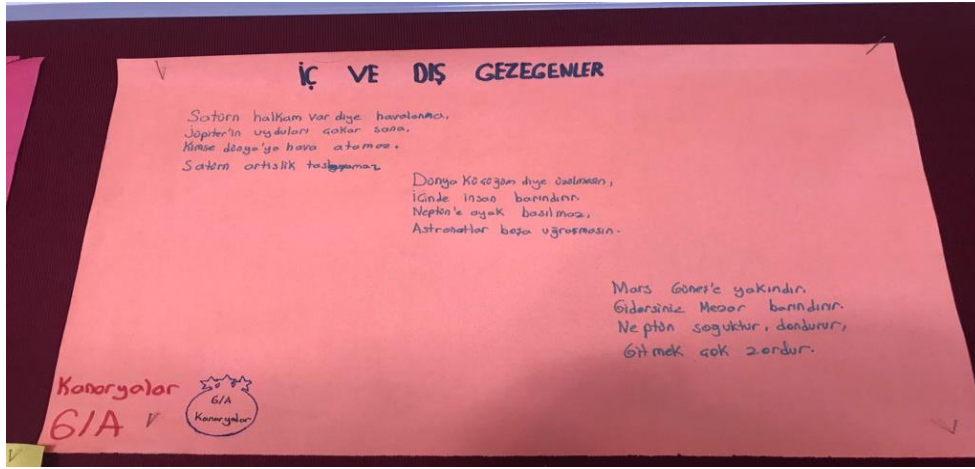 İÇ VE DIŞ GEZEGENLER
Satürn halkam var diye havalanma,
Jüpiter'in uyduları çakar sana,
Kimse dünya'ya hava atamaz.
Satürn artislik
Dünya küçüğüm diye üzülmesin,
İçinde insan barındırır.
Neptün'e ayak basılmaz,
Astronotlar boşa uğraşmasın.
Mars Güneş'e yakındır.
Gidersiniz Mezar barındırır.
Neptün soğuktur, dondurur,
Gitmek çok zordur.
Kanaryalar
6/A
6/A
Kanaryalar